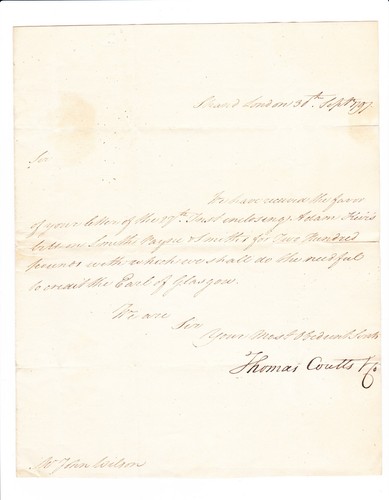 Strand London 30th Septr. 1797
Sir
We have received the favor
of your letter of the 27th Inst enclosing Adam Keir's
bill on Smiths Payne & Smiths for Two Hundred
pounds with which we shall do the needful
to credit the Earl of Glasgow.
We are
Sir
Your Most Obedient Servts
Thomas Coutts & Co
Mr John Wilson